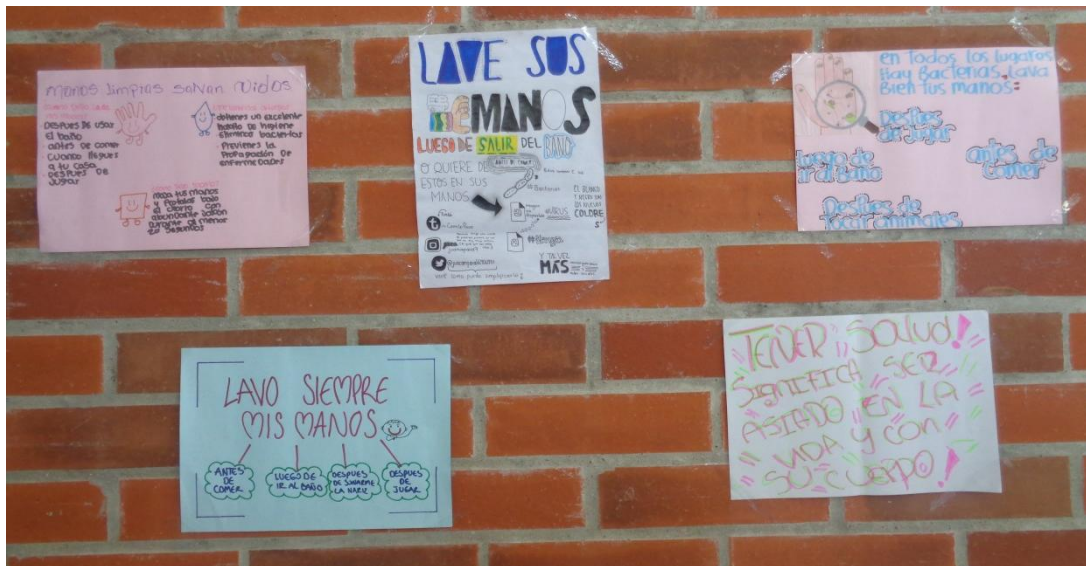 manos limpias salvan vidas
DESPUES DE USAR
EL baño
antes de comer
cuando llegues
a tu casa
DESPUES DE
JUGAR
obtienes un excelente
Habito de higiene
Eliminas bacterias
Previenes la
Propagación de
enfermedades
moja tus manos
y Frotalas bajo
el chorro con
abundante Jabon
durante al menos
20 segundos
LAVE SUS
MANOS
LUEGO DE SALIR DEL BAÑO
ANTES DE COMER
O QUIERE DE
ESTOS EN SUS
MANOS
#Bacterias
#VIRUS
#Hongos
COLORE
S
Y TAL VEZ
MÁS
en Todos los lugares
Hay Bacterias, Lava
Bien tus manos:
Despues
de Jugar
luego de
ir al Baño
antes de
comer
Despues de
Tocar animales
LAVO SIEMPRE
MIS MANOS
ANTES
DE
COMER
LUEGO DE
IR AL BAÑO
DESPUES
DE SONARME
LA NARIZ
DESPUES
DE
JUGAR
TENER SALUD!
SIGNIFICA SER
ASEADO EN LA
VIDA y CON
SU CUERPO!